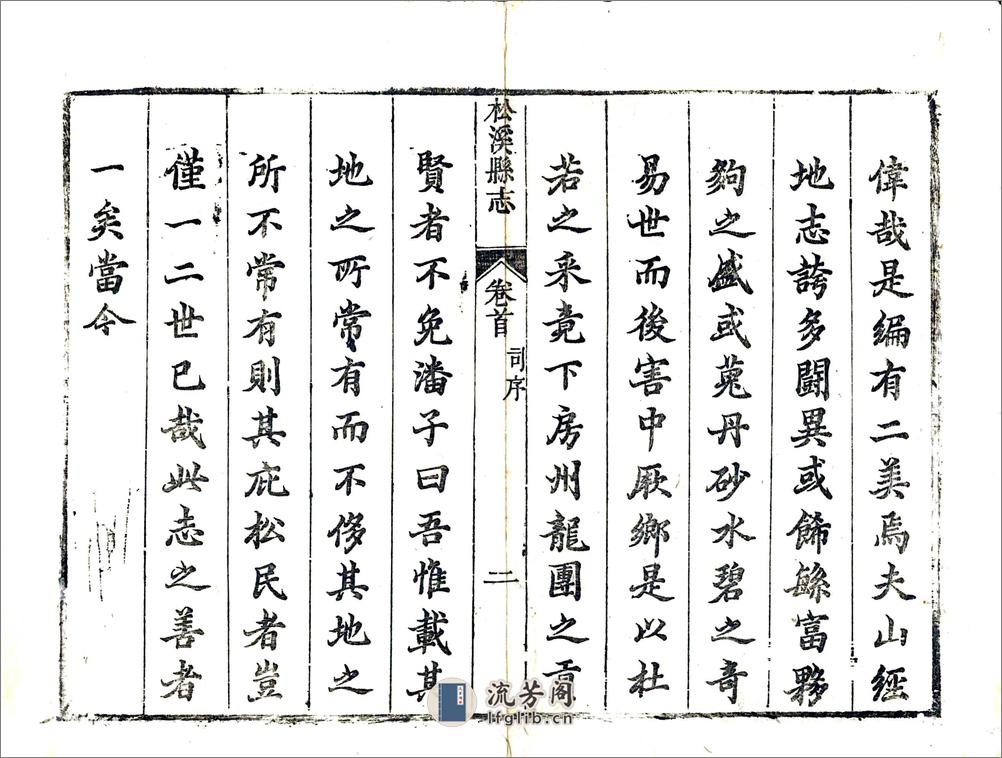 偉哉是編有二美焉夫山經
地志誇多闘異或餙繇富夥
夠之盛或蒐丹砂水碧之奇
易世而後害中厥鄉是以杜
若之采竟下房州龍團之貢
松溪縣志
卷首
司序
二
賢者不免潘子曰吾惟載其
地之所常有而不侈其地之
所不常有則其庇松民者豈
僅一二世已哉此志之善者
一矣當今
流芳阁
lfglib.cn